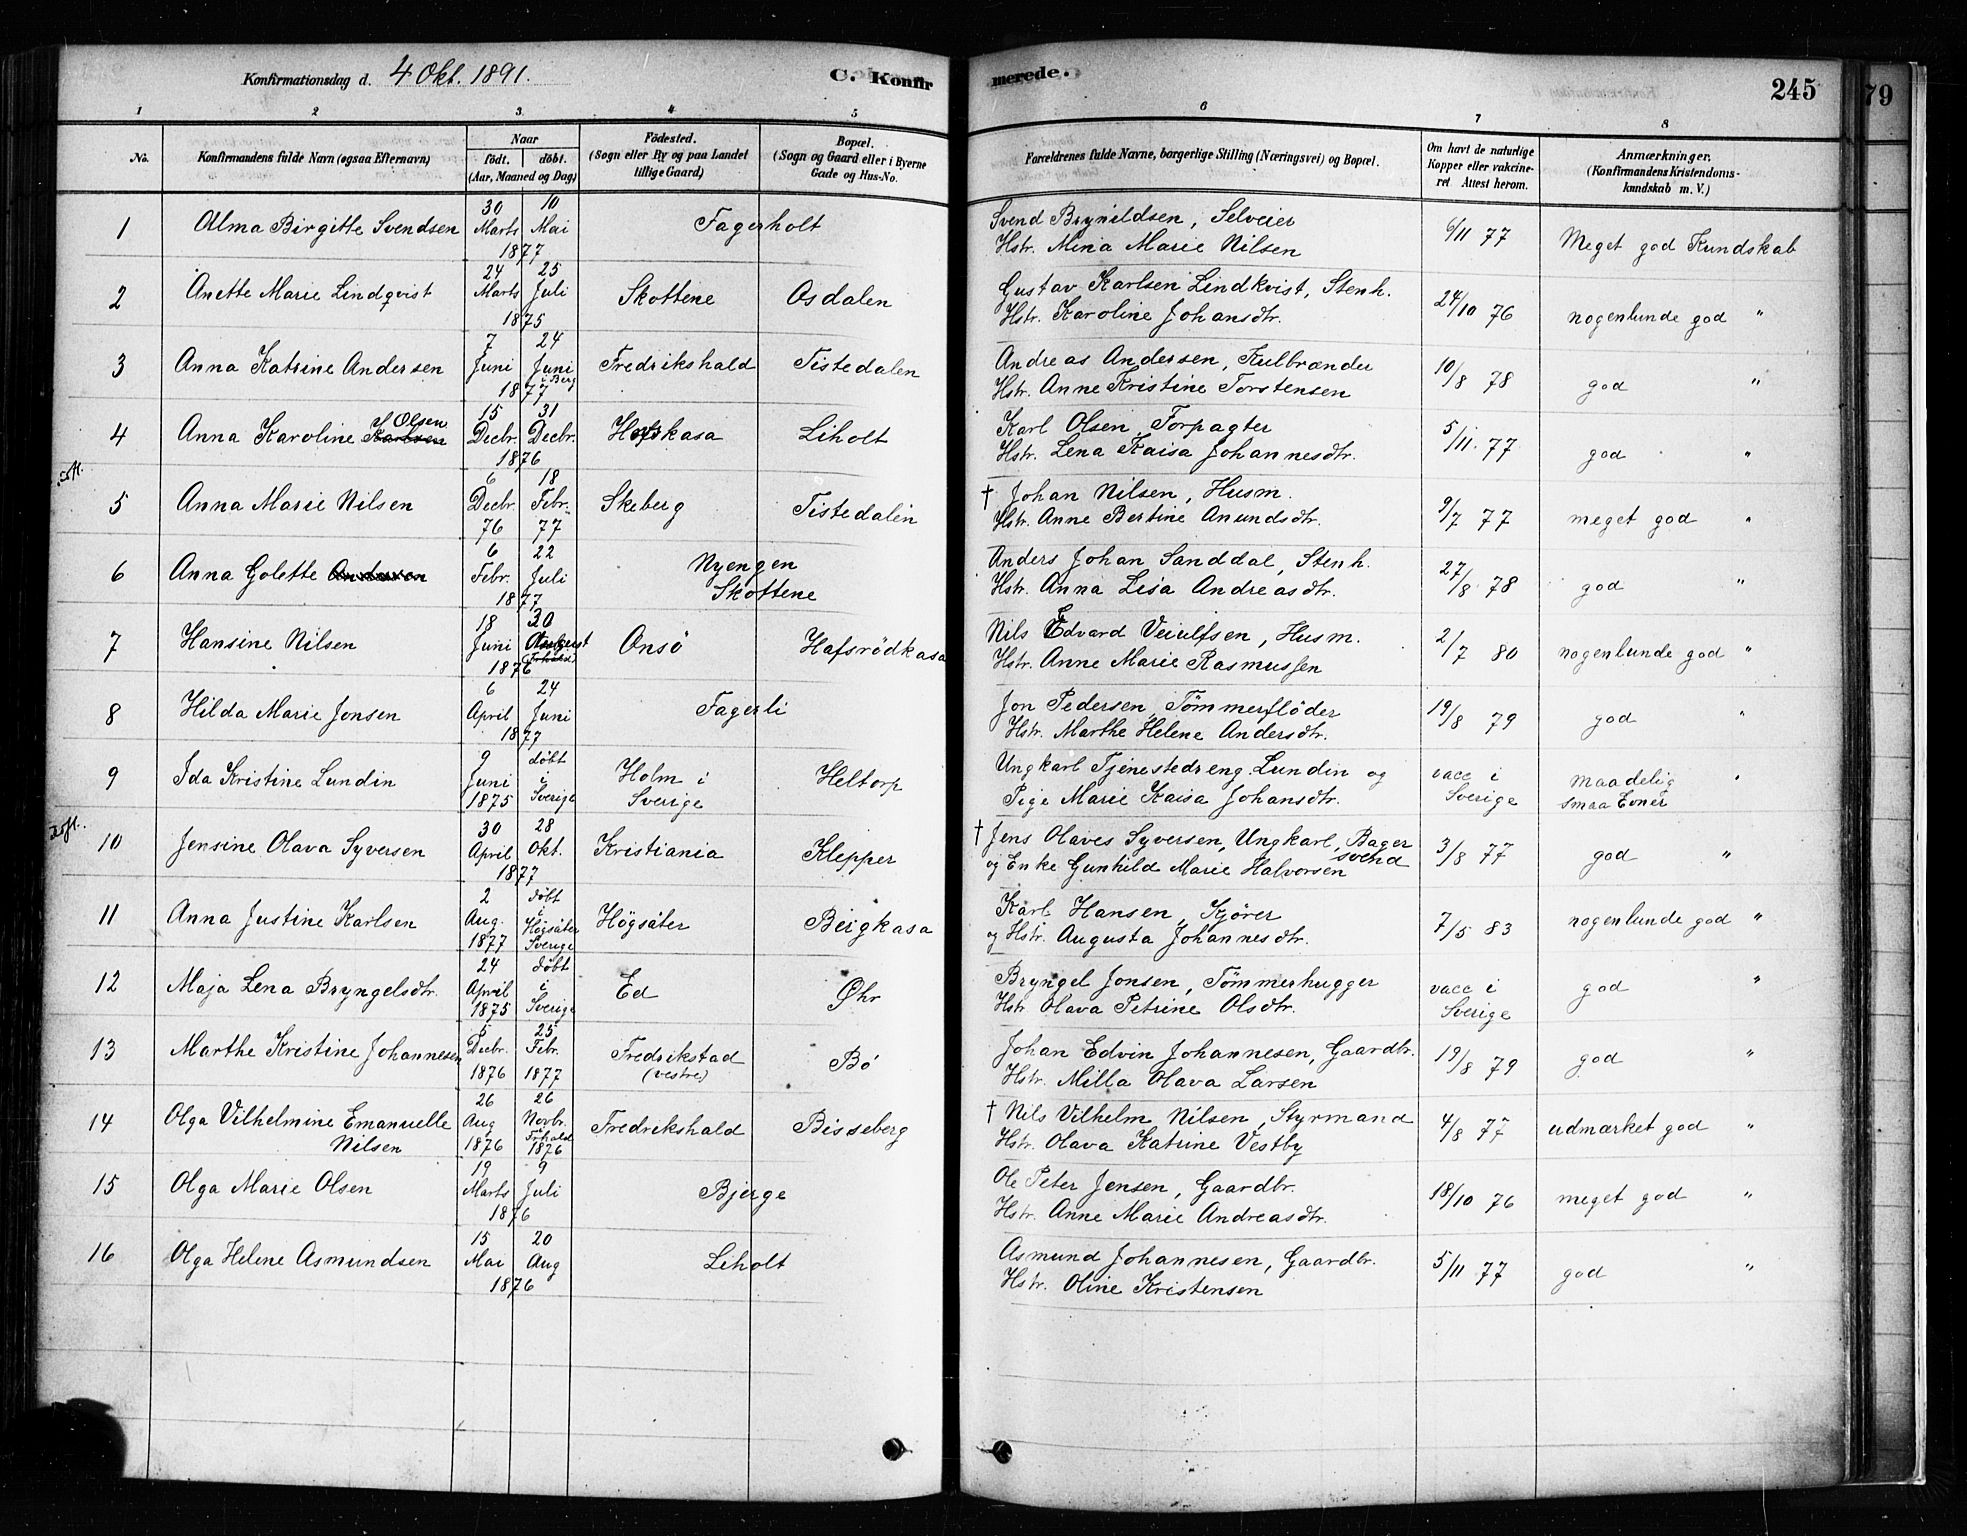 Konfirmationsdag d. 4 Okt. 1891. C. Konfirmerede. 245 79
1 2 3 4 5 6 7 8
No. Konfirmandens fulde Navn (ogsaa Efternavn) Naar födt. döbt. (Aar, Maaned og Dag) Födested. (Sogn eller By og paa Landet tillige Gaard) Bopæl. (Sogn og Gaard eller i Byerne Gade og Hus-No. Forældrenes fulde Navne, borgerlige Stilling (Næringsvei) og Bopæl. Om havt de naturlige Kopper eller vakcineret Attest herom. Anmærkninger. (Konfirmandens Kristendomskundskab m. V.)
1 Alma Birgitte Svendsen 30 Marts 10 Mai 1877 Fagerholt Svend Brynildsen, Selveier Hstr. Mina Marie Nilsen 6/11 77 Meget god Kundskab
2 Anette Marie Lindqvist 24 Marts 25 Juli 1875 Skottene Osdalen Gustav Karlsen Lindkvist, Stenh. Hstr. Karoline Johansdtr. 24/10 76 nogenlunde god "
3 Anna Katrine Andersen 7 Juni 24 Juni i Berg 1877 Fredrikshald Tistedalen Andreas Andersen, Kulbrænder Hstr. Anne Kristine Torstensen 10/8 78 god "
4 Anna Karoline Karlsen Olsen 15 Decbr. 31 Decbr. 1876 Liholt Karl Olsen, Forpagter Hstr. Lena Kaisa Johannesdtr. 5/11. 77 god "
5 Anna Marie Nilsen 6 Decbr. 76 18 Febr. 77 Skeberg Tistedalen † Johan Nilsen, Husm. Hstr. Anne Bertine Anundsdtr. 9/7 77 meget god "
6 Anna Golette 6 Febr. 22 Juli 1877 Nyengen Skottene Anders Johan Sanddal, Stenh. Hstr. Anna Lisa Andreasdtr. 27/8 78 god "
7 Hansine Nilsen 18 Juni 30 1876 Onsö Hafsrödkasa Nils Edvard Veiulfsen, Husm. Hstr. Anne Marie Rasmussen 2/7 80 nogenlunde god "
8 Hilda Marie Jonsen 6 April 24 Juni 1877 Fagerli Jon Pedersen, Tömmerflöder Hstr. Marthe Helene Andersdtr. 19/8 79 god "
9 Ida Kristine Lundin 9 Juni 1875 döbt i Sverige Holm i Sverige Heltorp Ungkarl Tjenestedreng Lundin og Pige Marie Kaisa Johansdtr. vacc i Sverige maadelig smaa Evner "
10 Jensine Olava Syversen 30 April 28 Okt. 1877 Kristiania Klepper † Jens Olaves Syversen, Ungkarl, Bager svend og Enke Gunhild Marie Halvorsen 3/8 77 god "
11 Anna Justine Karlsen 2 Aug. 1877 döbt i Högsäter Sverige Högsäter Bergkasa Karl Hansen, Kjörer og Hstr. Augusta Johannesdtr. 7/5 83 nogenlunde god "
12 Maja Lena Bryngelsdtr. 24 April 1875 döbt i Sverige Ed Øhr Bryngel Jonsen, Tømmerhugger Hstr Olava Petrine Olsdtr. vacc i Sverige god "
13 Marthe Kristine Johannesen 5 Decbr. 1876 25 Febr. 1877 Fredrikstad (vestre) Bö Johan Edvin Johannesen, Gaardbr. Hstr. Milla Olava Larsen 19/8 79 god "
14 Olga Vilhelmine Emanuelle Nilsen 26 Aug 1876 26 Novbr. Frhald 1876 Fredrikshald Bisseberg † Nils Vilhelm Nilsen, Styrmand Hstr. Olava Katrine Vestby 4/8 77 udmærket god "
15 Olga Marie Olsen 19 Marts 9 Juli 1876 Bjerge Ole Peter Jensen, Gaardbr. Hstr. Anne Marie Andreasdtr. 18/10 76 meget god "
16 Olga Helene Asmundsen 15 Mai 20 Aug 1876 Liholt Asmund Johannesen, Gaardbr. Hstr. Oline Kristensen 5/11 77 god "